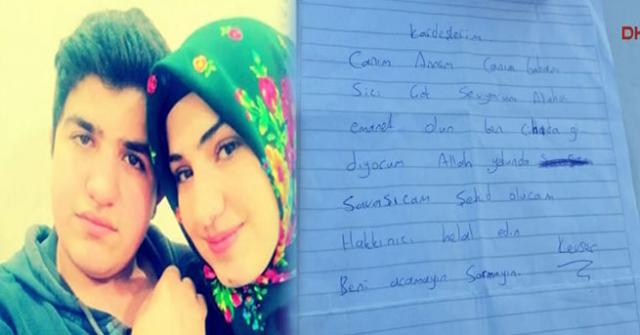 DH
Kardeşlerim
Canım Annem Canım babam
Sizi Çok Seviyorum Allaha
emanet olun ben Cihada gi
diyorum Allah yolunda
Savaşıcam Şehid olucam
Hakkınızı helal edin
Kevser
Beni aramayın Sormayın.